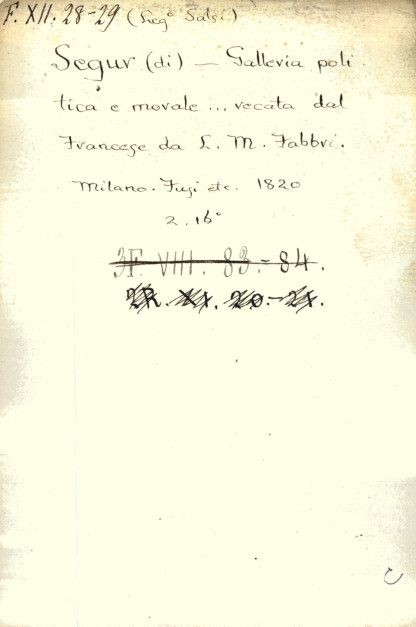 F. XII. 28-29 (Leg.o Salsi)
Segur (di) — Galleria poli-
tica e morale ... recata dal
Francese da L. M. Fabbri.
Milano. Fusi etc. 1820
2. 16°
3F. VIII. 83.-84.
2R. XI. 20.-21.